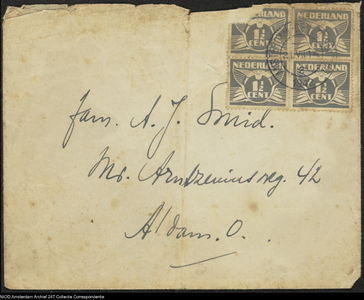 NEDERLAND NEDERLAND
1½ 1½
CENT CENT
NEDERLAND NEDERLAND
1½ 1½
CENT CENT
Fam. A. J. Smid.
Mr. Arntzeniusweg. 42
A'dam. O.
NIOD Amsterdam Archief 247 Collectie Correspondentie